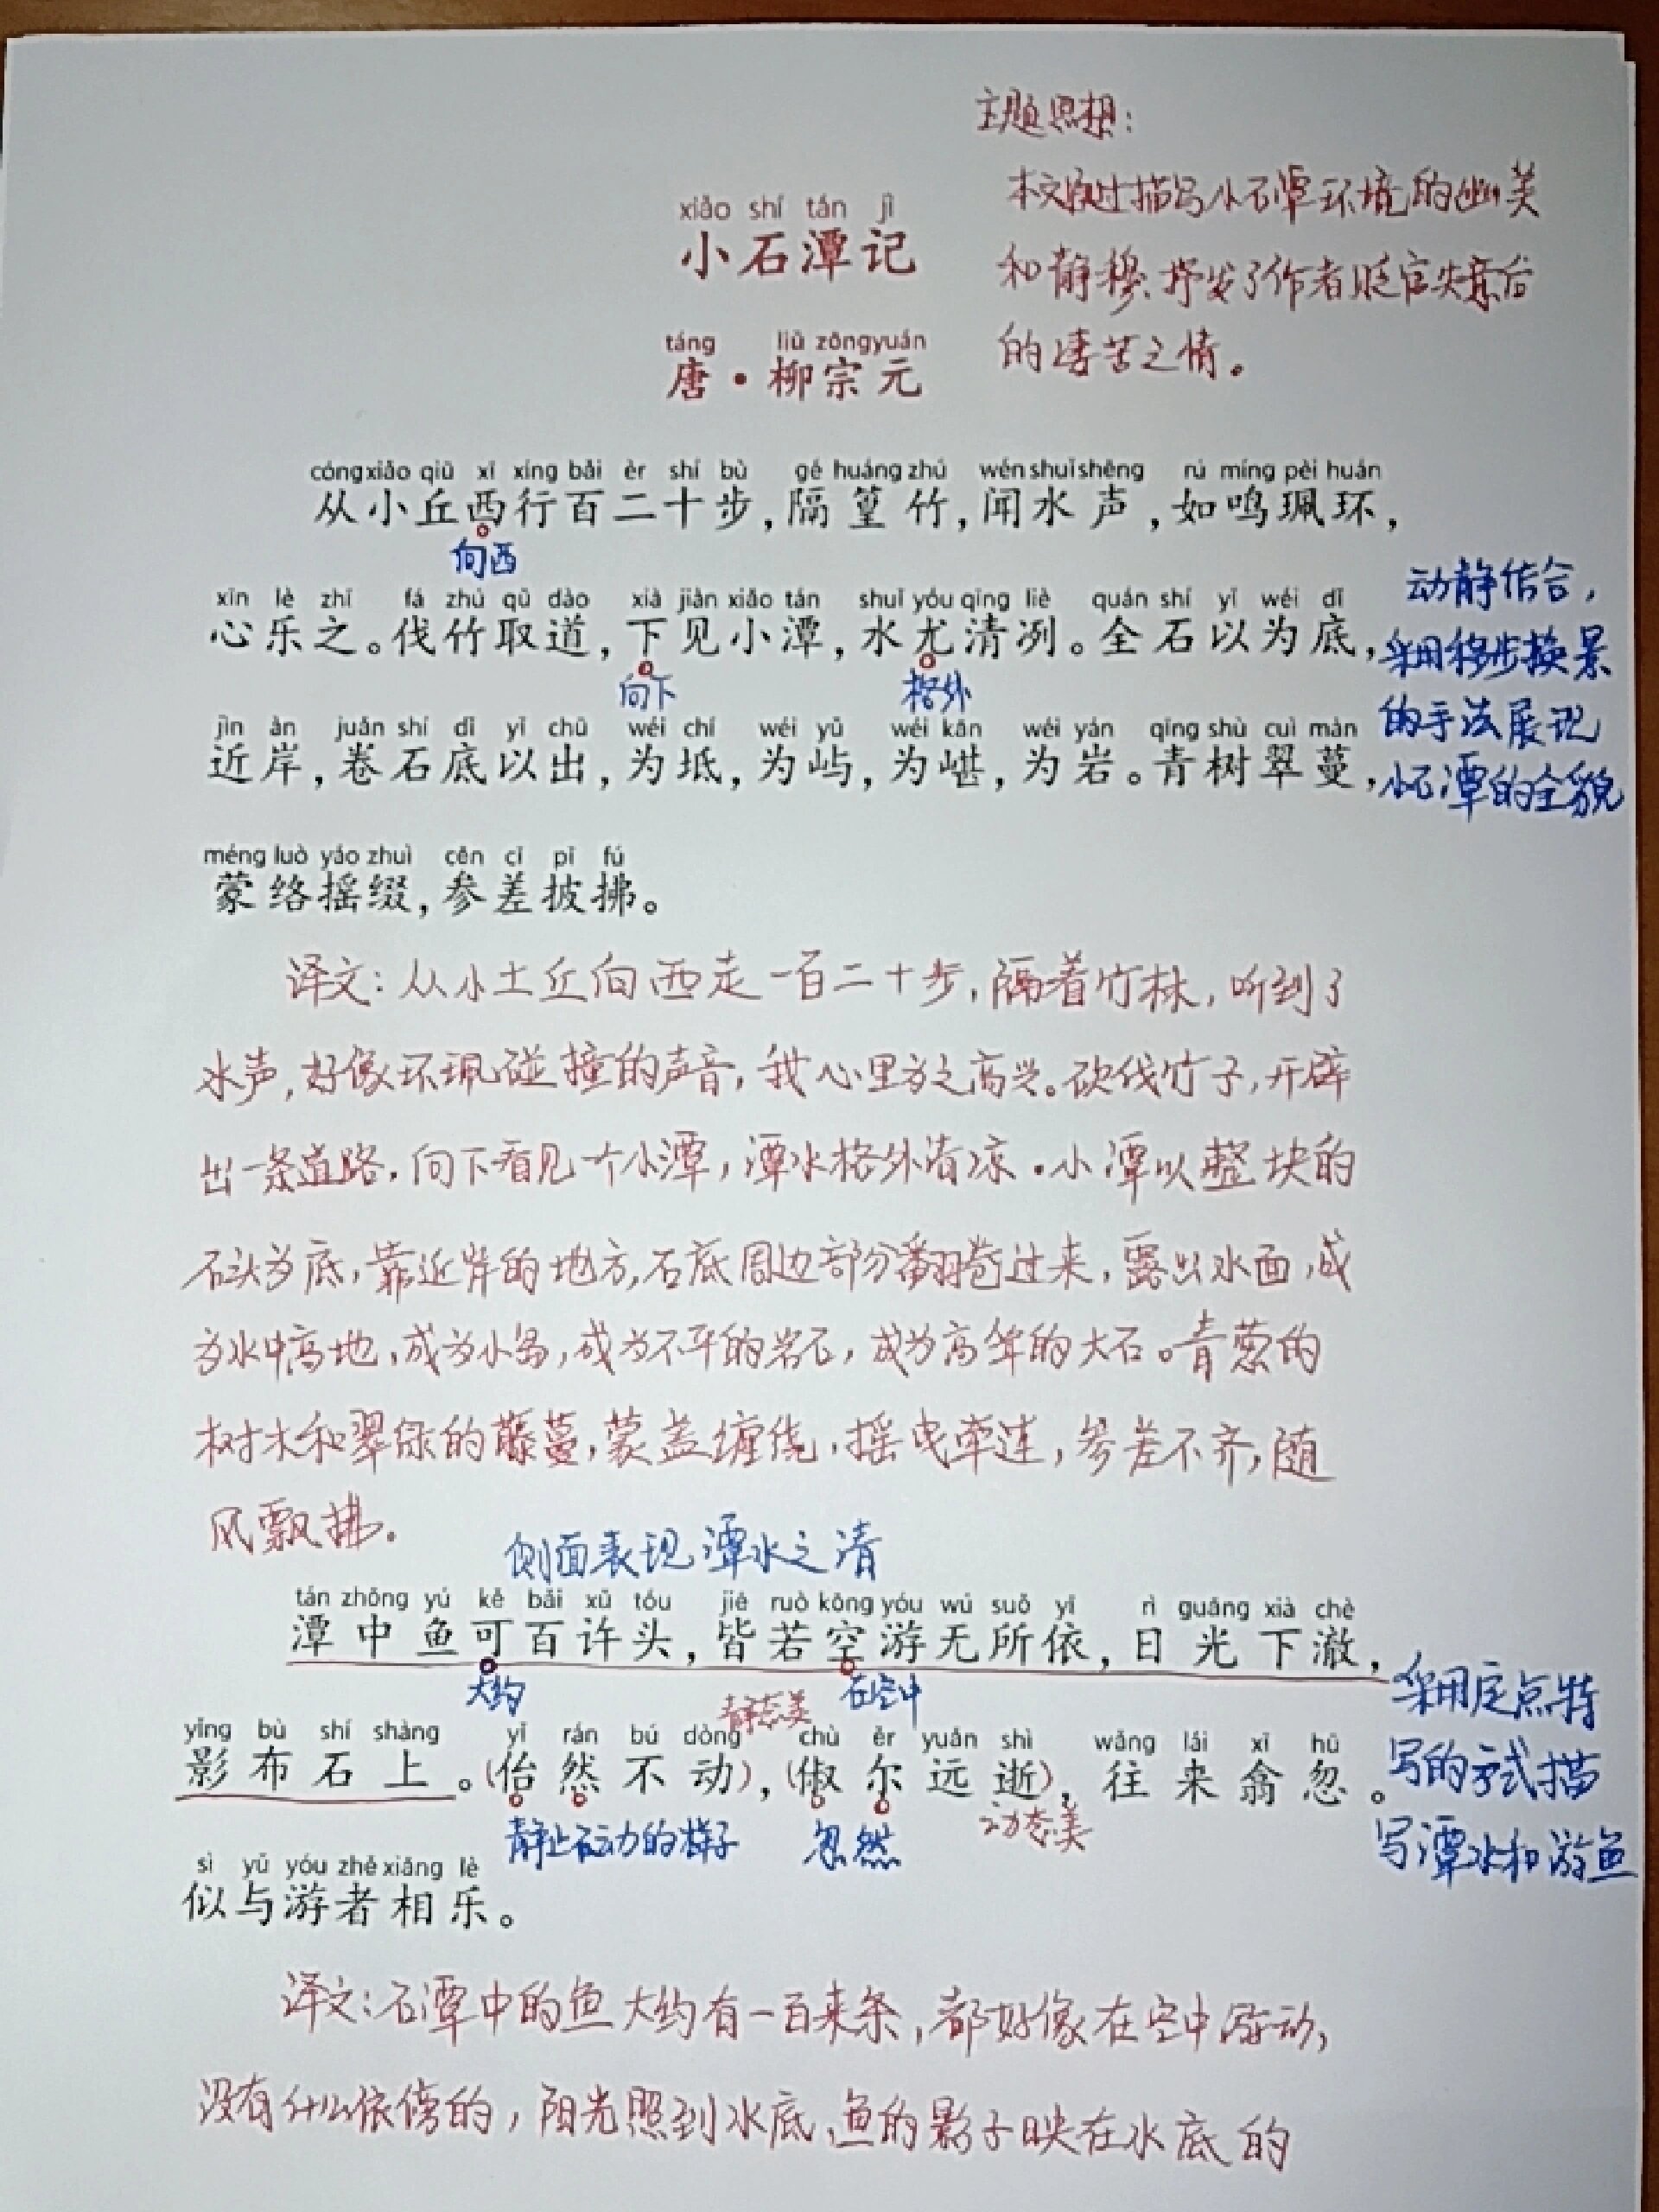 主题思想：
本文通过描写小石潭环境的幽美
和静穆，抒发了作者贬官失意后
的凄苦之情。
xiǎo shí tán jì
小石潭记
táng liǔ zōngyuán
唐·柳宗元
cóng xiǎo qiū xī xíng bǎi èr shí bù gé huáng zhú wén shuǐ shēng rú míng pèi huán
从小丘西行百二十步，隔篁竹，闻水声，如鸣珮环，
向西
xīn lè zhī fá zhú qǔ dào xià jiàn xiǎo tán shuǐ yóu qīng liè quán shí yǐ wéi dǐ
心乐之。伐竹取道，下见小潭，水尤清冽。全石以为底，
向下 格外
jìn àn juǎn shí dǐ yǐ chū wéi chí wéi yǔ wéi kān wéi yán qīng shù cuì màn
近岸，卷石底以出，为坻，为屿，为嵁，为岩。青树翠蔓，
动静结合，
采用移步换景
的手法展现
小石潭的全貌
méng luò yáo zhuì cēn cī pī fú
蒙络摇缀，参差披拂。
译文：从小土丘向西走一百二十步，隔着竹林，听到了
水声，好像环珮碰撞的声音，我心里为之高兴。砍伐竹子，开辟
出一条道路，向下看见一个小潭，潭水格外清凉。小潭以整块的
石头为底，靠近岸的地方，石底周边部分翻卷过来，露出水面，成
为水中高地，成为小岛，成为不平的岩石，成为高耸的大石。青葱的
树木和翠绿的藤蔓，蒙盖缠绕，摇曳牵连，参差不齐，随
风飘拂。
侧面表现潭水之清
tán zhōng yú kě bǎi xǔ tóu jiē ruò kōng yóu wú suǒ yī rì guāng xià chè
潭中鱼可百许头，皆若空游无所依，日光下澈，
大约 在空中
静态美
yǐng bù shí shàng yǐ rán bú dòng chù ěr yuǎn shì wǎng lái xī hū
影布石上。(佁然不动)，(俶尔远逝)，往来翕忽。
静止不动的样子 忽然 动态美
采用定点特
写的方式描
写潭水和游鱼
sì yǔ yóu zhě xiāng lè
似与游者相乐。
译文：石潭中的鱼大约有一百来条，都好像在空中游动，
没有什么依傍的，阳光照到水底，鱼的影子映在水底的